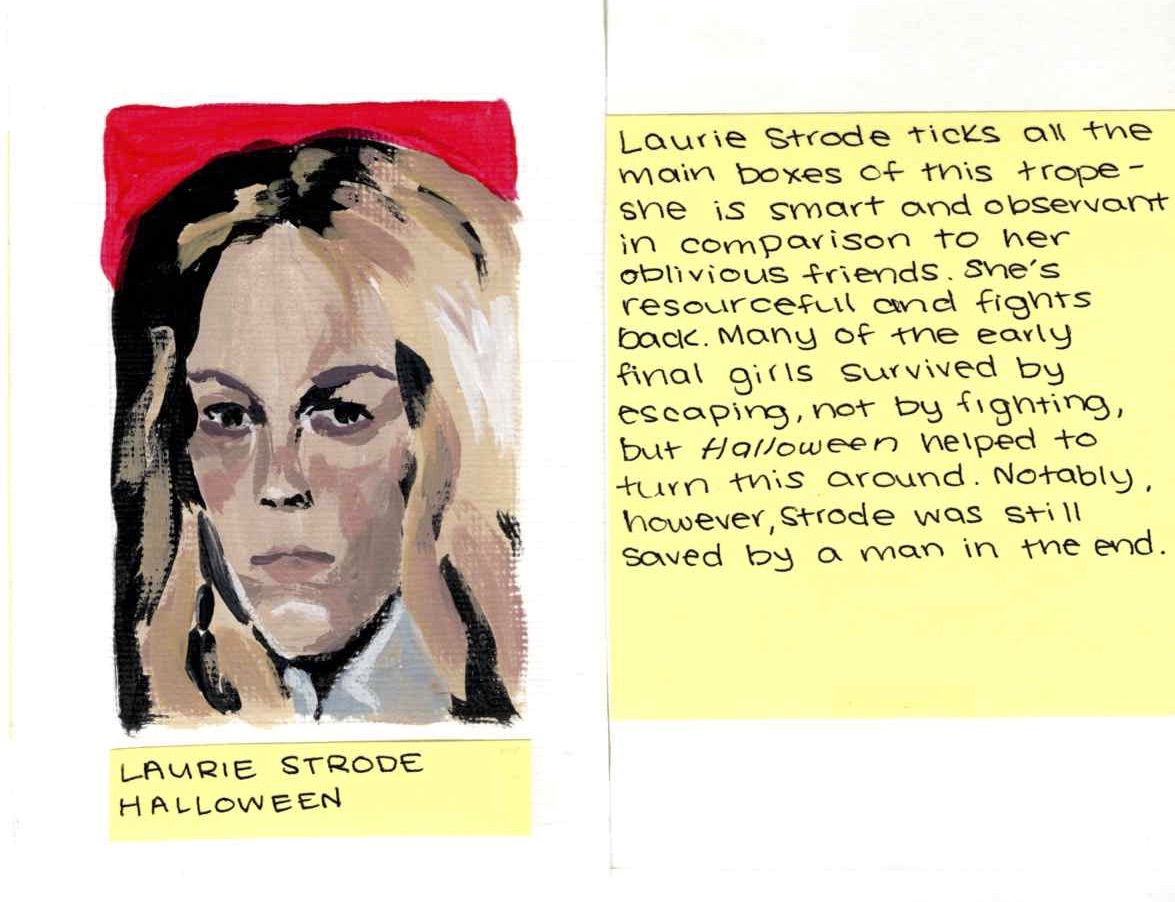 LAURIE STRODE
HALLOWEEN
Laurie Strode ticks all the
main boxes of this trope-
she is smart and observant
in comparison to her
oblivious friends. She's
resourcefull and fights
back. Many of the early
final girls survived by
escaping, not by fighting,
but Halloween helped to
turn this around. Notably,
however, Strode was still
saved by a man in the end.